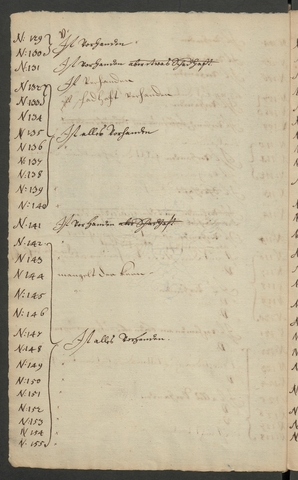 N: 129
N: 130 Ist vorhanden.
N: 131 Ist vorhanden aber etwas Schadhaft
N: 132 Ist vorhanden
N: 133 ist schadhaft vorhanden
N: 134
N: 135 Ist alles vorhanden
N: 136
N: 137
N: 138
N: 139
N: 140
N: 141 Ist vorhanden aber Schadhaft
N: 142
N: 143
N: 144 mangelt
N: 145
N: 146
N: 147
N: 148 Ist alles vorhanden.
N: 149
N: 150
N: 151
N: 152
N: 153
N: 154
N: 155